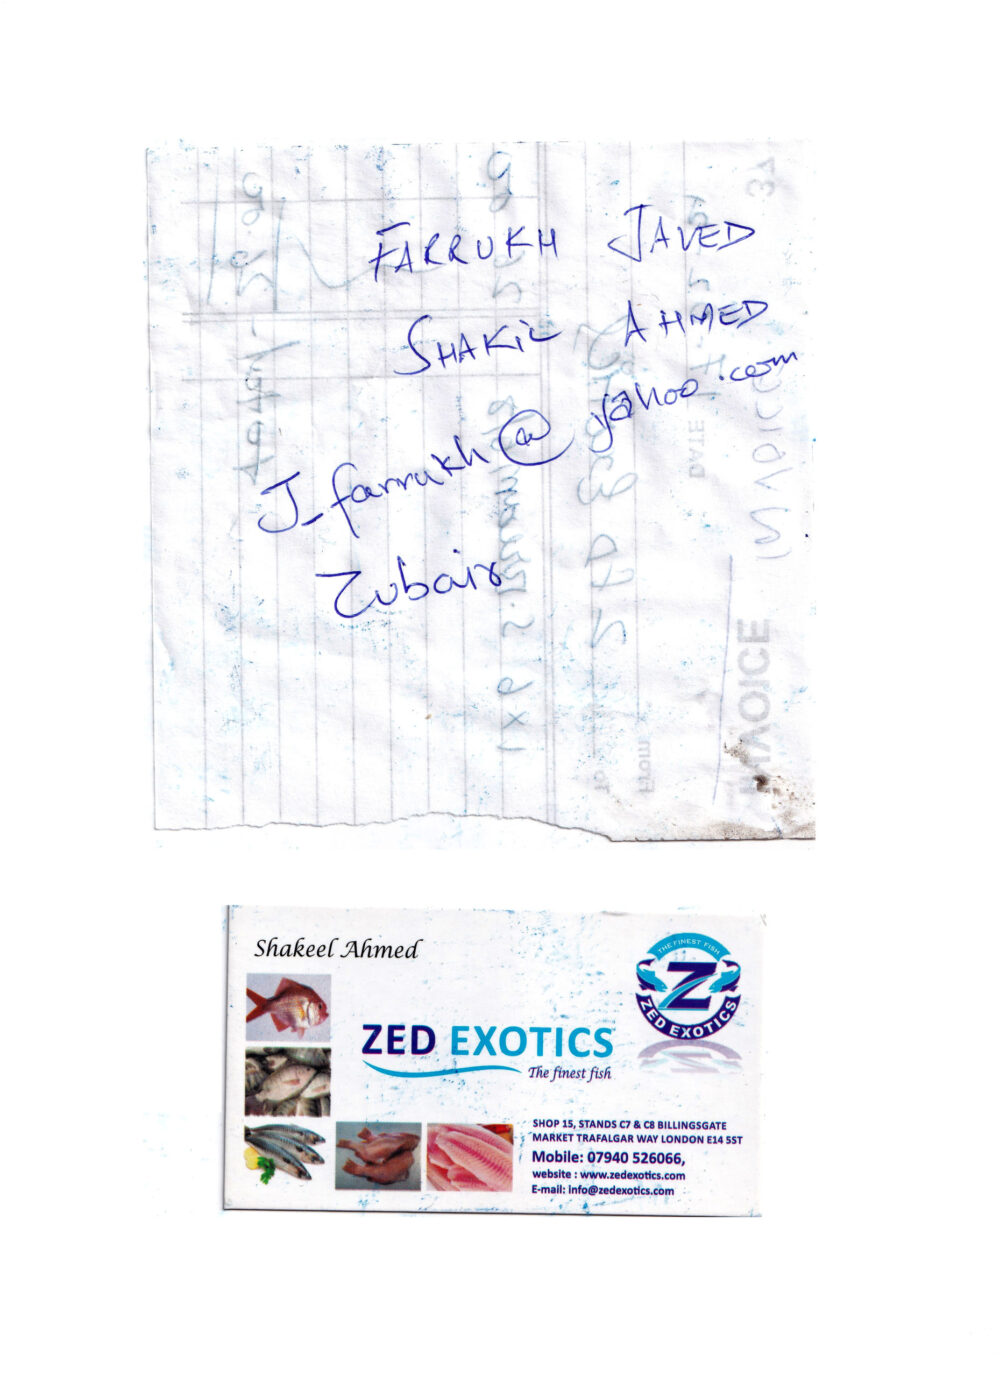 FARRUKH JAVED
SHAKIL AHMED
J_farrukh@yahoo.com
Zubair
INVOICE
From
To
DATE
Shakeel Ahmed
THE FINEST FISH
Z
ZED EXOTICS
ZED EXOTICS
The finest fish
SHOP 15, STANDS C7 & C8 BILLINGSGATE
MARKET TRAFALGAR WAY LONDON E14 5ST
Mobile: 07940 526066,
website : www.zedexotics.com
E-mail: info@zedexotics.com